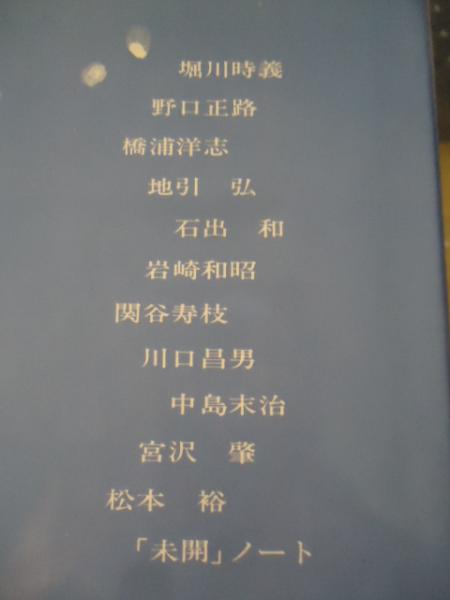 堀川時義
野口正路
橋浦洋志
地引　弘
石出　和
岩崎和昭
関谷寿枝
川口昌男
中島末治
宮沢　肇
松本　裕
「未開」ノート